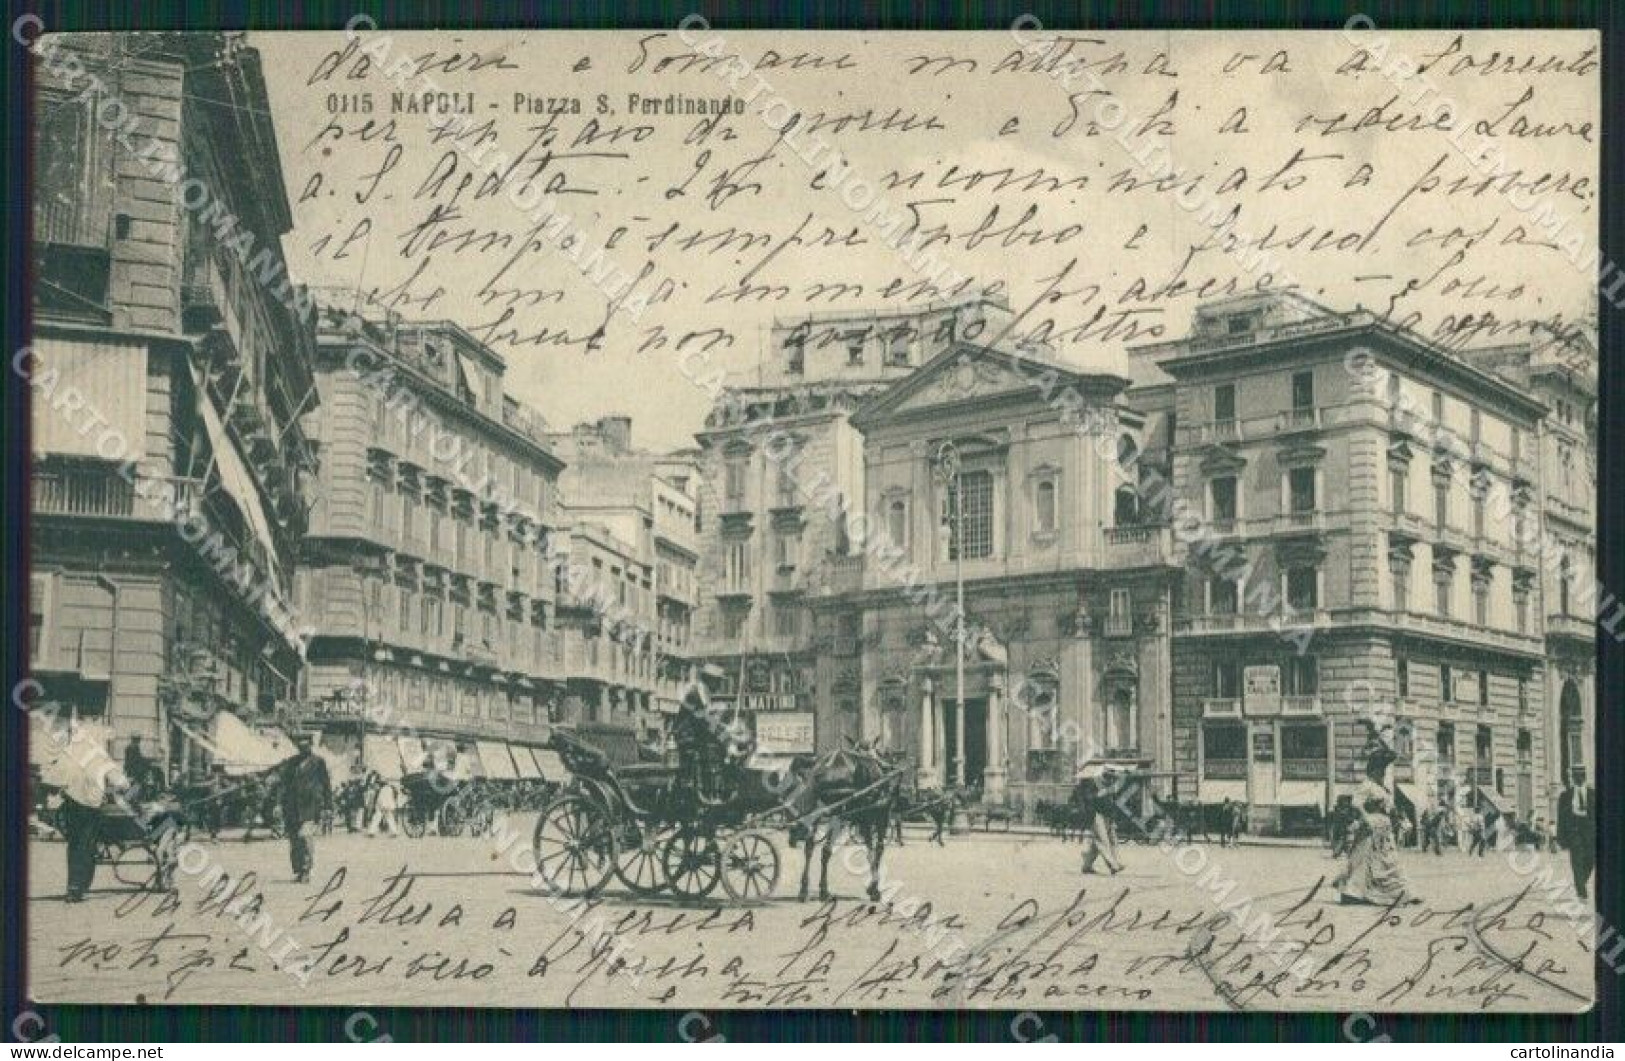 da ieri e domani mattina va a Sorrento
0115 NAPOLI - Piazza S. Ferdinando
per un paio di giorni e di lì a vedere Laura
a S. Agata. - Qui è ricominciato a piovere;
il tempo è sempre dubbio e fresco, cosa
che mi fa immenso piacere. - Sono
breve non avendo altro
IL MATTINO
Dalla lettera a avrai appreso le poche
notizie. Scriverò a la prossima volta. Con Papà
e tutti ti abbraccio
CARTOLINOMANIA
cartolinandia